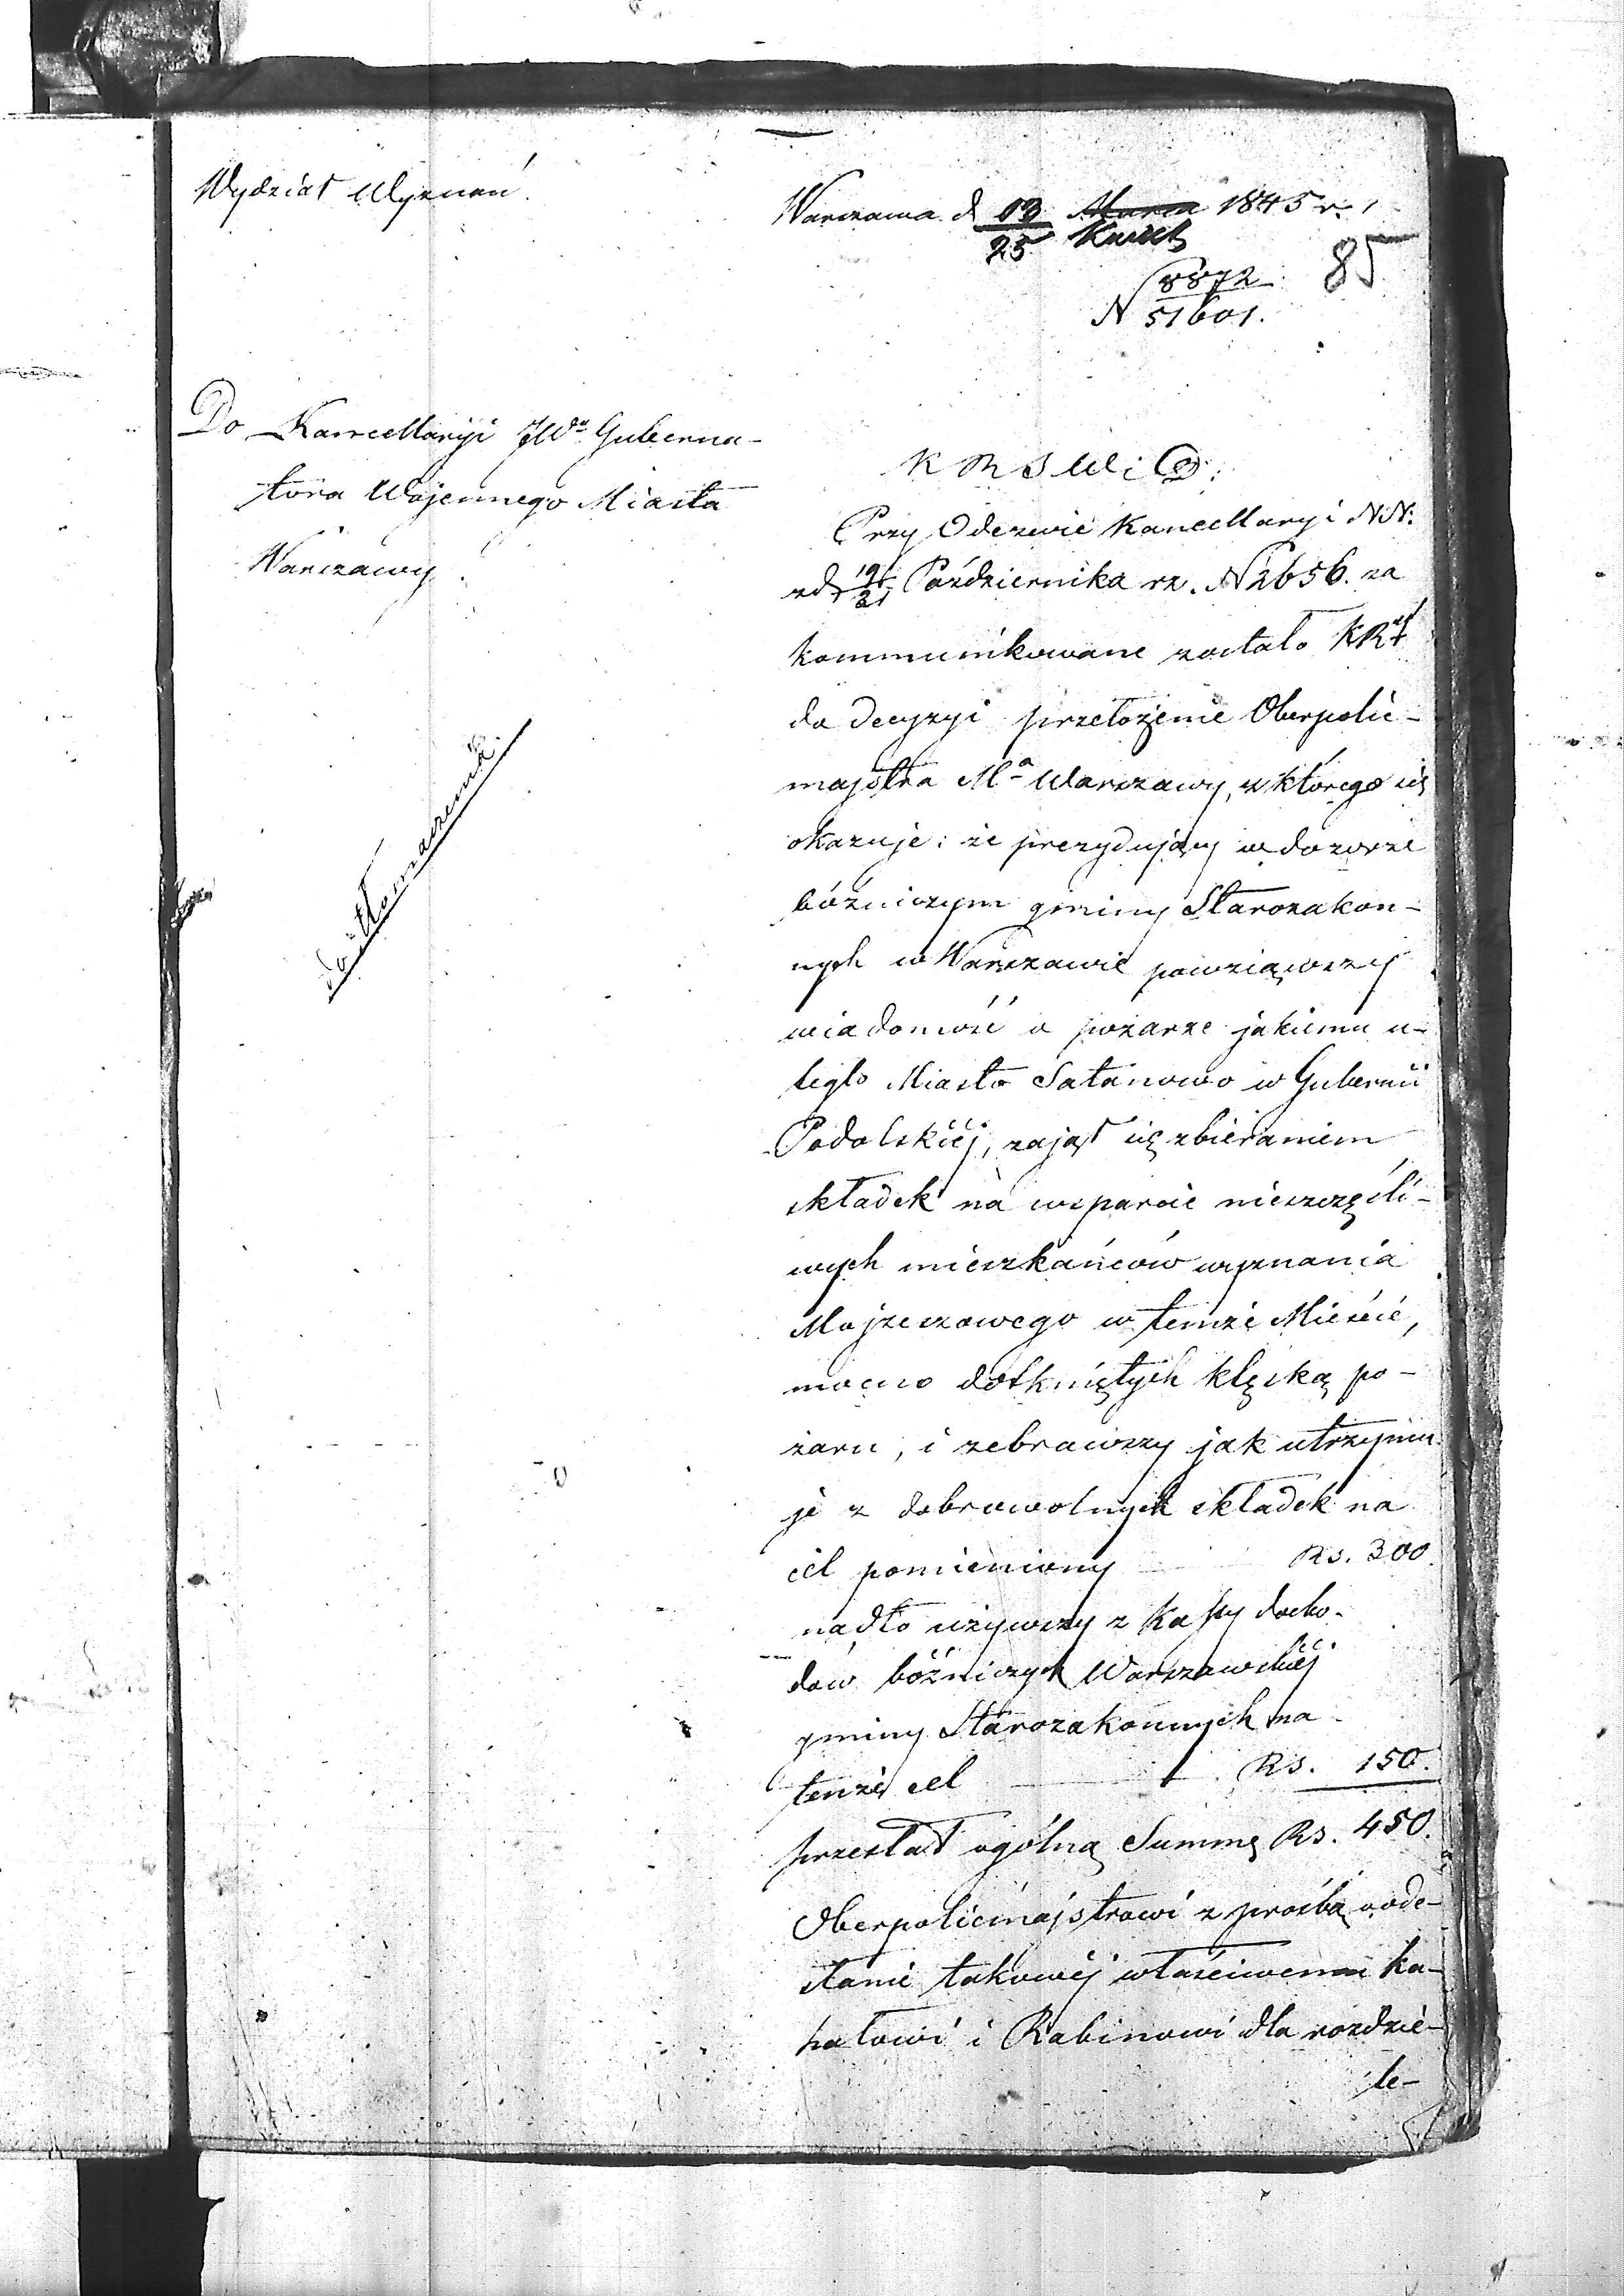 Wydział Wyznań.
Warszawa d 13/25 Marca 1845 r.
Kwiet
85
8872
N 51601.
Do Kancellaryi JWo Guberna-
tora Wojennego Miasta
Warszawy.
K R S W i D.
Przy Odezwie Kancellaryi NN.
zd 19/31 Października rz. N 2656. za
kommunikowane zostało KR
do decyzyi przełożenie Oberpolic-
majstra Ma Warszawy, z którego się
okazuje: że prezydujący w dozorze
bóźniczym gminy Starozakon-
nych w Warszawie powziąwszy
wiadomość o pożarze jakiemu u-
legło Miasto Satanowo w Gubernii
Podolskiéj, zajął się zbieraniem
składek na wsparcie nieszczęśli-
wych mieszkańców wyznania
Mojżeszowego w temże Mieście,
mocno dotkniętych klęską po-
żaru, i zebrawszy jak utrzymu
je z dobrowolnych składek na
cel pomieniony Rs. 300.
nadto używszy z Kassy docho-
dów bóźniczych Warszawskiéj
gminy Starozakonnych na
tenże cel Rs. 150.
przesłał ogólną Summę Rs. 450.
Oberpolicmajstrowi z prośbą o ode-
słanie takowéj właściwemu ka-
hałowi i Rabinowi dla rozdzie-
le-